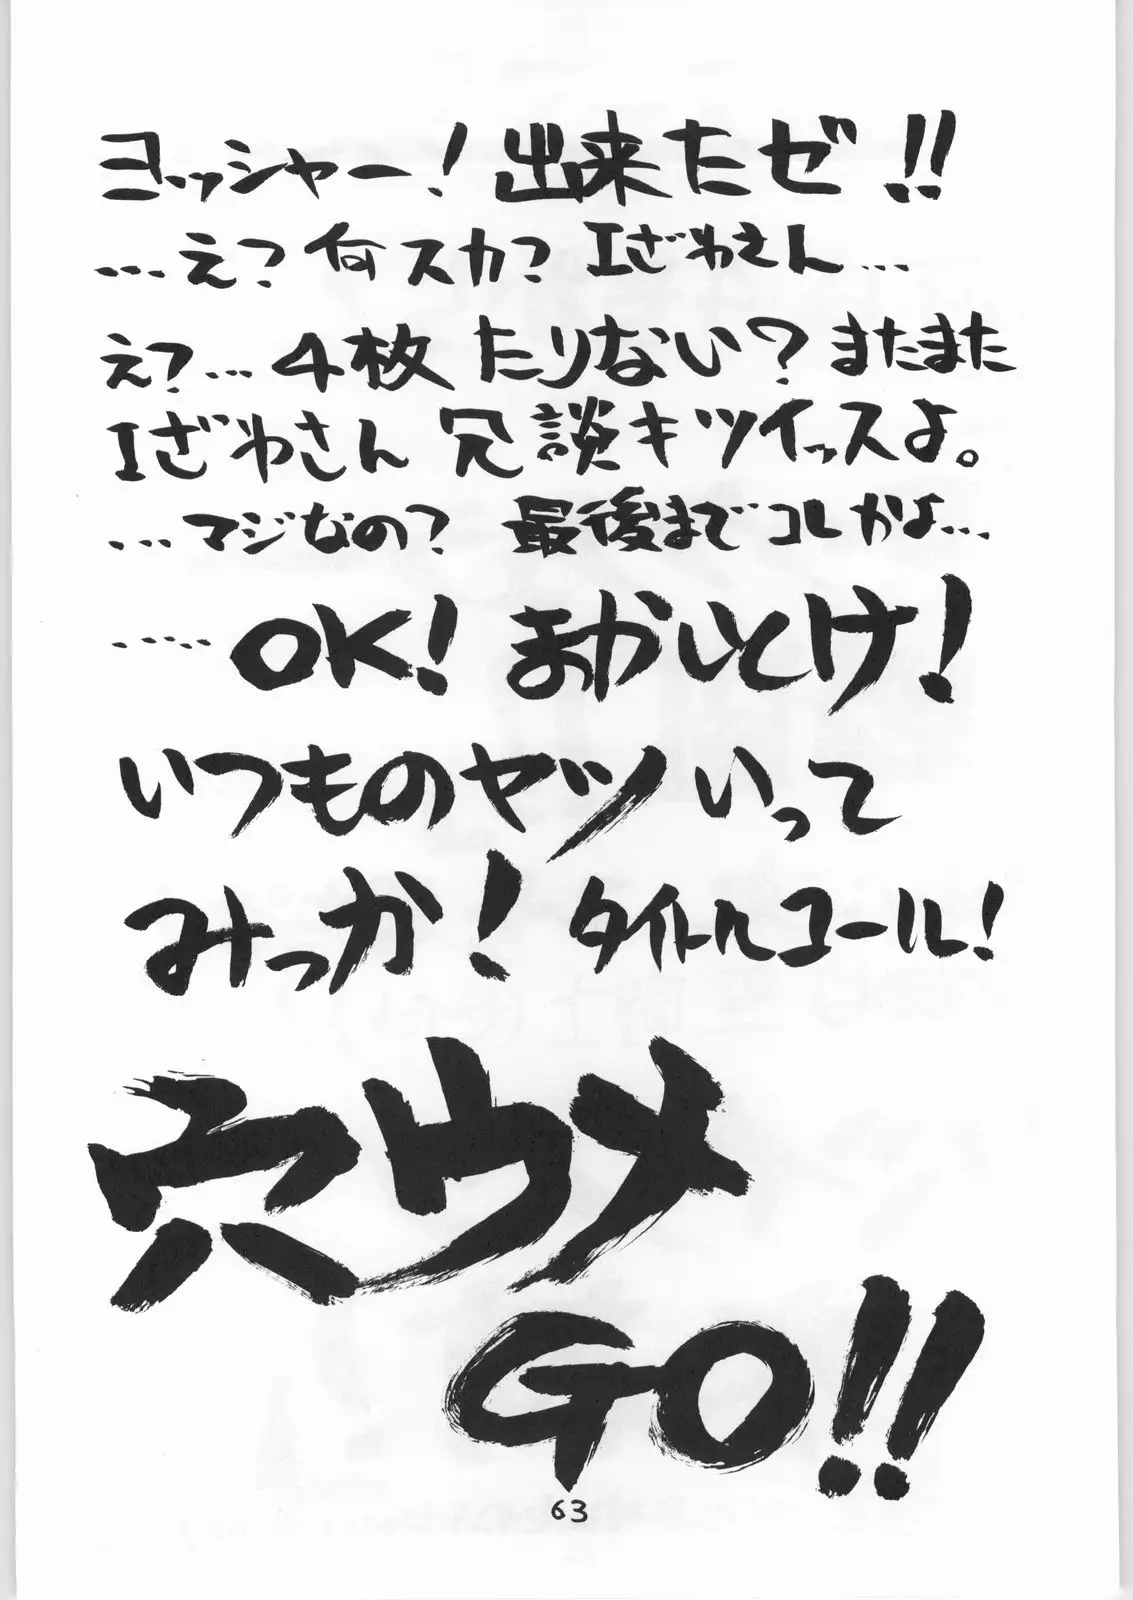 ヨッシャー!出来たゼ!!
…え?何スカ?Iざわさん…
え?…4枚たりない?またまた
Iざわさん冗談キツイッスよ。
…マジなの?最後までコレかよ…
……OK!まかしとけ!
いつものヤツいって
みっか!タイトルコール!
穴ウメ
GO!!
63